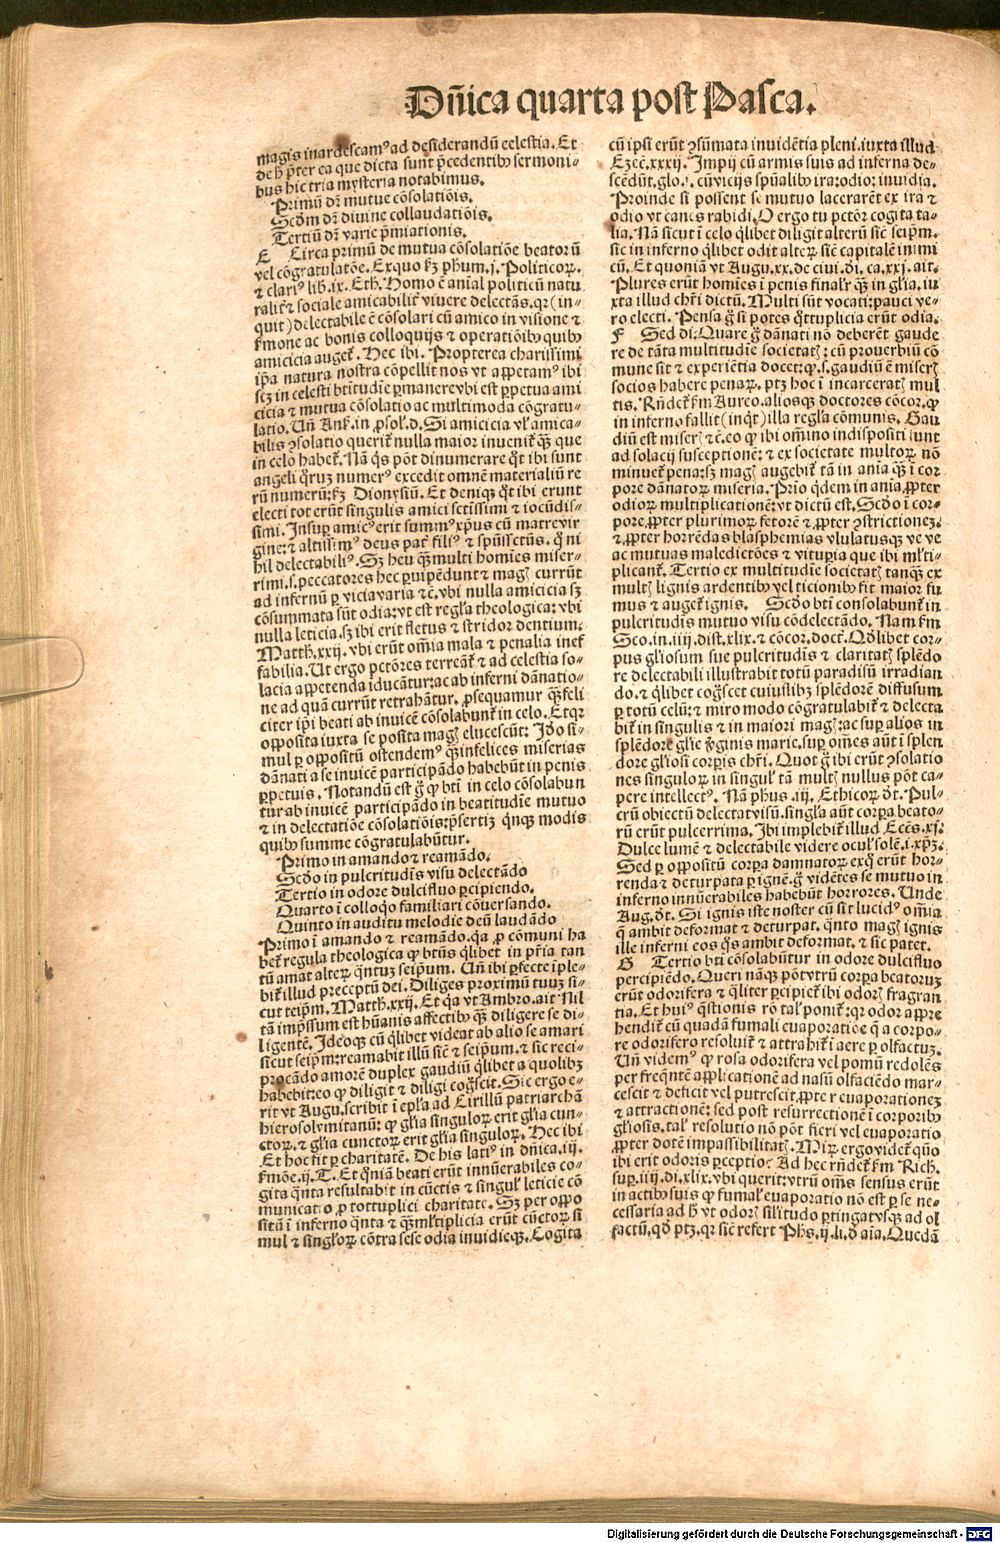 Dn̄ica quarta post Pasca.
magis inardescamꝰ ad desiderandū celestia. Et
de h̰ p̄ter ea que dicta sunt p̄cedentibꝰ sermoni-
bus hic tria mysteria notabimus.
Primū dr̄ mutue cōsolatiōis.
Scd̄m dr̄ diuine collaudatiōis.
Tertiū dr̄ varie p̄miationis.
E Circa primū de mutua cōsolatiōe beatorū
vel cōgratulatōe. Ex quo ẜm phūm.j. Politicoꝝ.
⁊ clariꝰ lib.ix. Eth. Homo ē aīal politicū natu
raliť ⁊ sociale amicabiliť viuere delectās.qꝛ (in-
quit) delectabile ē cōsolari cū amico in visione ⁊
ẜmone ac bonis colloquijs ⁊ operatiōibꝰ quibꝰ
amicicia augeť. Hec ibi. Propterea charissimi
ip̄a natura nostra cōpellit nos vt appetamꝰ ibi
scꝫ in celesti btītudīe ꝑmanere vbi est ꝑpetua ami
cicia ⁊ mutua cōsolatio ac multimoda cōgratu-
latio. Uñ Anẜ. in ꝓsol̄.d. Si amicicia vl̓ amica-
bilis ꝯsolatio queriť nulla maior inueniť q̄ꝫ que
in celo habeť. Nā q̄s pōt dinumerare q̄t ibi sunt
angeli q̄ruꝫ numerꝰ excedit omnē materialiū re
rū numerū:ẜꝫ Dionysiū. Et deniqꝫ q̄t ibi erunt
electi tot erūt singulis amici sctīssimi ⁊ iocūdis-
simi. Insuꝑ amicꝰ erit summꝰ xp̄us cū matre vir
gine:⁊ altissimꝰ deus pať filiꝰ ⁊ spūssctūs. q̄ ni
hil delectabiliꝰ. Sꝫ heu q̄ꝫ multi homīes miser-
rimi.s.peccatores hec ꝑuipēdunt ⁊ magꝭ currūt
ad infernū ꝑ vicia varia ⁊c̄. vbi nulla amicicia sꝫ
cōsummata sūt odia:vt est regl̓a theologica: vbi
nulla leticia.sꝫ ibi erit fletus ⁊ stridor dentium.
Matth̓.xxij. vbi erūt om̄ia mala ⁊ penalia inef
fabilia. Ut ergo pctōres terreanť ⁊ ad celestia so-
lacia appetenda iducātur:ac ab inferni dānatio-
ne ad quā currūt retrahātur. ꝓsequamur q̄ꝫ feli
citer ip̄i beati ab inuicē cōsolabunť in celo. Et qꝛ
opposita iuxta se posita magꝭ elucescūt: Idō si-
mul ꝑ oppositū ostendemꝰ q̄ꝫ infelices miserias
dānati a se inuicē participādo habebūt in penis
ꝑpetuis. Notandū est ḡ ꝙ btī in celo cōsolabun
tur ab inuicē participādo in beatitudīe mutuo
⁊ in delectatiōe cōsolatiōis:p̄sertiꝫ q̄nqꝫ modis
quibꝰ summe cōgratulabūtur.
Primo in amando ⁊ reamādo.
Scd̄o in pulcritudīs visu delectādo
Tertio in odore dulcifluo ꝑcipiendo.
Quarto ī colloq̄o familiari cōuersando.
Quinto in auditu melodie deū laudādo
Primo ī amando ⁊ reamādo.q̄a ꝓ cōmuni ha
beť regula theologica ꝙ btūs q̄libet in pr̄ia tan
tū amat alteꝝ q̄ntuꝫ seip̄um. Uñ ibi ꝑfecte īple-
biť illud preceptū dei. Diliges proximū tuuꝫ si-
cut teip̄m. Matth̓.xxij. Et q̄a vt Ambro.ait Nil
tā imp̄ssum est hūanis affectibꝰ q̄ꝫ diligere se di-
ligentē. Ideoqꝫ cū q̄libet videat ab alio se amari
sicut seip̄m:reamabit illū sic̄ ⁊ seip̄um.⁊ sic reci-
procādo amorē duplex gaudiū q̄libet a quolibꝫ
habebit:eo ꝙ diligit ⁊ diligi cog̓scit. Sic ergo e-
rit vt Augu.scribit ī ep̄la ad Cirillū patriarchā
hierosolymitanū: ꝙ gl̓ia singuloꝝ erit gl̓ia cun-
ctoꝝ.⁊ gl̓ia cunctoꝝ erit gl̓ia singuloꝝ. Hec ibi
Et hoc fit ꝑ charitatē. De his latiꝰ in dn̄ica.iij.
ẜmōe.ij.T. Et q̄niā beati erūt innūerabiles co-
gita q̄nta resultabit in cūctis ⁊ singul̓ leticie cō
municatio ꝓ tottuplici charitate. Sꝫ per oppo
sitū ī inferno q̄nta ⁊ q̄ꝫ ml̓tiplicia erūt cūctoꝝ si
mul ⁊ singl̓oꝝ cōtra sese odia inuidieqꝫ. Cogita
cū ipsi erūt ꝯsūmata inuidētia pleni.iuxta illud
Ezec̄.xxxij. Impij cū armis suis ad inferna de-
scēdūt.glo.i. cū vicijs spūalibꝰ ira:odio: inuidia.
Proinde si possent se mutuo lacerarēt ex ira ⁊
odio vt canes rabidi. O ergo tu pctōr cogita ta-
lia. Nā sicut ī celo q̄libet diligit alterū sic̄ seip̄m.
sic in inferno q̄libet odit alteꝝ sic̄ capitalē inimi
cū. Et quoniā vt Augu.xx.de ciui.dī.ca.xxj.ait.
Plures erūt homīes ī penis finalr̄ q̄ꝫ in gl̓ia.iu
xta illud chr̄i dictū. Multi sūt vocati:pauci ve-
ro electi. Pensa ḡ si potes q̄ttuplicia erūt odia.
F Sed di. Quare ḡ dānati nō deberēt gaude
re de tāta multitudīe societatꝭ: cū proverbiū cō
mune sit ⁊ experiētia docet:ꝙ.s.gaudiū ē miserꝭ
socios habere penaꝝ. ptꝫ hoc ī incarceratꝭ mul
tis. Rñdeť ẜm Aureo.aliosqꝫ doctores cōcor.ꝙ
in inferno fallit (inq̄t) illa regl̓a cōmunis. Gau
diū est miserꝭ ⁊c̄.eo ꝙ ibi om̄ino indispositi sunt
ad solacij susceptionē: ⁊ ex societate multoꝝ nō
minueť pena:sꝫ magꝭ augebiť tā in aīa q̄ꝫ ī cor
pore dānatoꝝ miseria. Prīo q̄dem in aīa.ꝓpter
odioꝝ multiplicationē:vt dictū est. Scd̄o ī cor-
pore.ꝓpter plurimoꝝ fetorē ⁊ ꝓpter ꝯstrictionez.
⁊ ꝓpter horrēdas blasphemias vlulatusqꝫ ve ve
ac mutuas maledictōes ⁊ vituꝑia que ibi ml̓ti-
plicanť. Tertio ex multitudīe societatꝭ tanq̄ꝫ ex
multꝭ lignis ardentibꝰ vel ticionibꝰ fit maior fu
mus ⁊ augeť ignis. Scd̄o btī consolabunť in
pulcritudīs mutuo visu cōdelectādo. Nam ẜm
Sco.in.iiij.dist.xlix.⁊ cōcor.doct̄. Qd̓libet cor-
pus gl̓iosum sue pulcritudīs ⁊ claritatꝭ splēdo
re delectabili illustrabit totū paradisū irradian
do.⁊ q̄libet cog̓scet cuiuslibꝫ splēdorē diffusum
ꝑ totū celū:⁊ miro modo cōgratulabiť ⁊ delecta
biť in singulis ⁊ in maiori magꝭ:ac suꝑ alios in
splēdore gl̓ie v̓ginis marie.suꝑ om̄es aūt ī splen
dore gl̓iosi corꝑis chr̄i. Quot ḡ ibi erūt ꝯsolatio
nes singuloꝝ in singul̓ tā multꝭ nullus pōt ca-
pere intellectꝰ. Nā phūs.iij. Ethicoꝝ dt̄. Pul-
crū obiectū delectat visū.singl̓a aūt corꝑa beato-
rū erūt pulcerrima. Ibi implebiť illud Ecc̄s.xj.
Dulce lumē ⁊ delectabile videre ocul̓ solē.i.xp̄ꝫ.
Sed ꝑ oppositū corꝑa damnatoꝝ ex q̄ erūt hor-
renda ⁊ deturpata ꝑ ignē.ḡ vidētes se mutuo in
inferno innūerabiles habebūt horrores. Unde
Aug.dt̄. Si ignis iste noster cū sit lucidꝰ om̄ia
q̄ ambit deformat ⁊ deturpat. q̄nto magꝭ ignis
ille inferni eos q̄s ambit deformat.⁊ sic patet.
G Tertio btī cōsolabūtur in odore dulcifluo
percipiēdo. Queri nāqꝫ pōt vtrū corꝑa beatoruꝫ
erūt odorifera ⁊ q̄liter ꝑcipieť ibi odorꝭ fragran
tia. Et huiꝰ q̄stionis rō tal̓ poniť: qꝛ odor appre
hendiť cū quadā fumali euaporatiōe q̄ a corpo-
re odorifero resoluiť ⁊ attrahiť ī aere ꝑ olfactuꝫ.
Uñ videmꝰ ꝙ rosa odorifera vel pomū redolēs
per freq̄ntē applicationē ad nasū olfaciēdo mar-
cescit ⁊ deficit vel putrescit.ꝓpter euaporationeꝫ
⁊ attractionē: sed post resurrectionē ī corporibꝰ
gl̓iosis.tal̓ resolutio nō pōt fieri vel euaporatio
ꝓpter dotē impassibilitatꝭ. Miꝝ ergo videť quō
ibi erit odoris ꝑceptio: Ad hec rñdeť ẜm Rich.
suꝑ.iiij.di.xlix.vbi querit:vtrū om̄s sensus erūt
in actibꝰ suis ꝙ fumal̓ euaporatio nō est ꝑ se ne-
cessaria ad h̰ vt odorꝭ sil̓itudo ꝑtingat vsqꝫ ad ol
factū.qd̓ ptꝫ.qꝛ sic̄ refert Phs̄.ij.li.d̓ aīa. Quedā
Digitalisierung gefördert durch die Deutsche Forschungsgemeinschaft - DFG